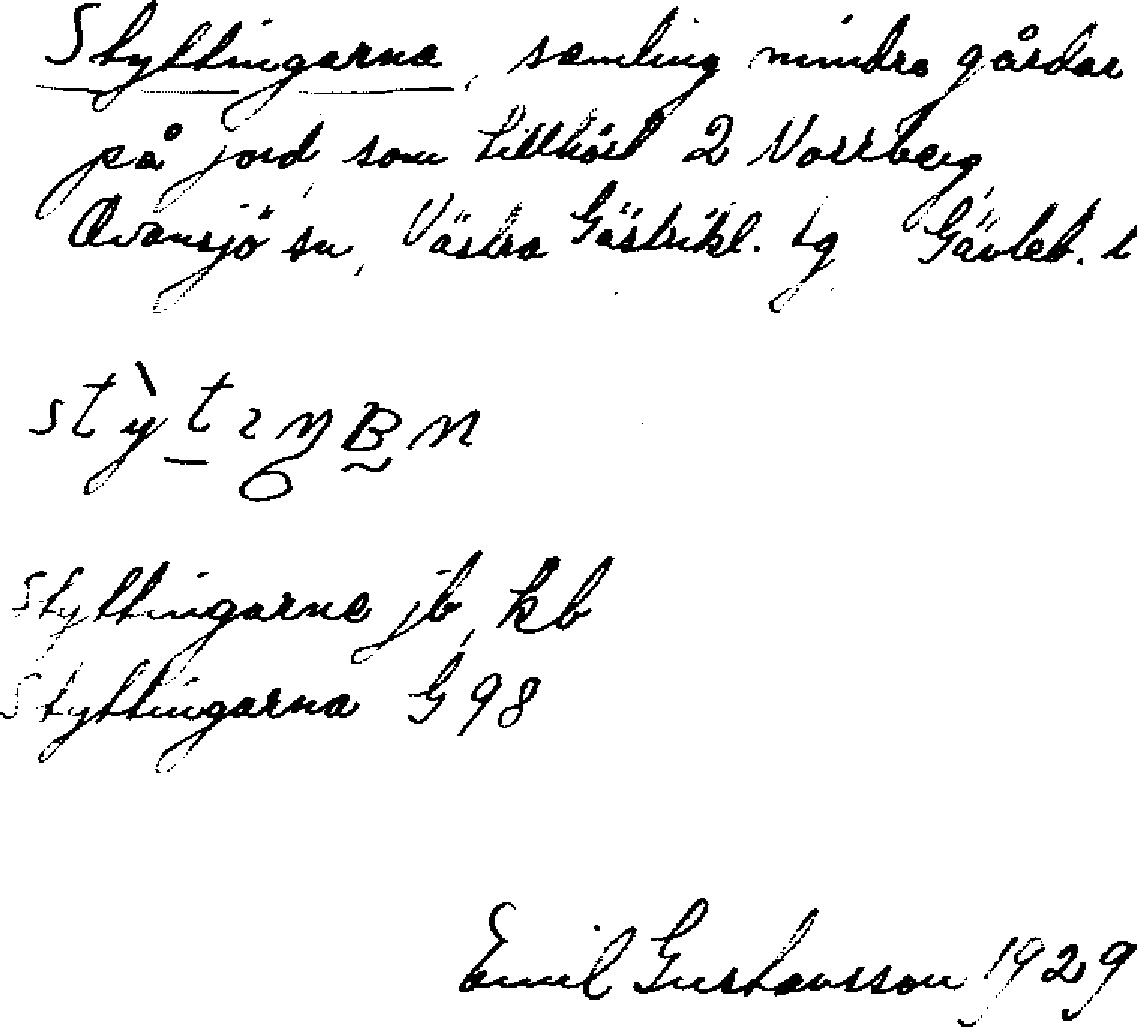 Styttingarna, samling mindre gårdar
på jord, som tillhört 2 Norrberg,
Ovansjö sn, Västra Gästrikl. tg Gävleb. l
Styttingarne jb, kb
Styttingarna G 98
Emil Gustavsson 1929